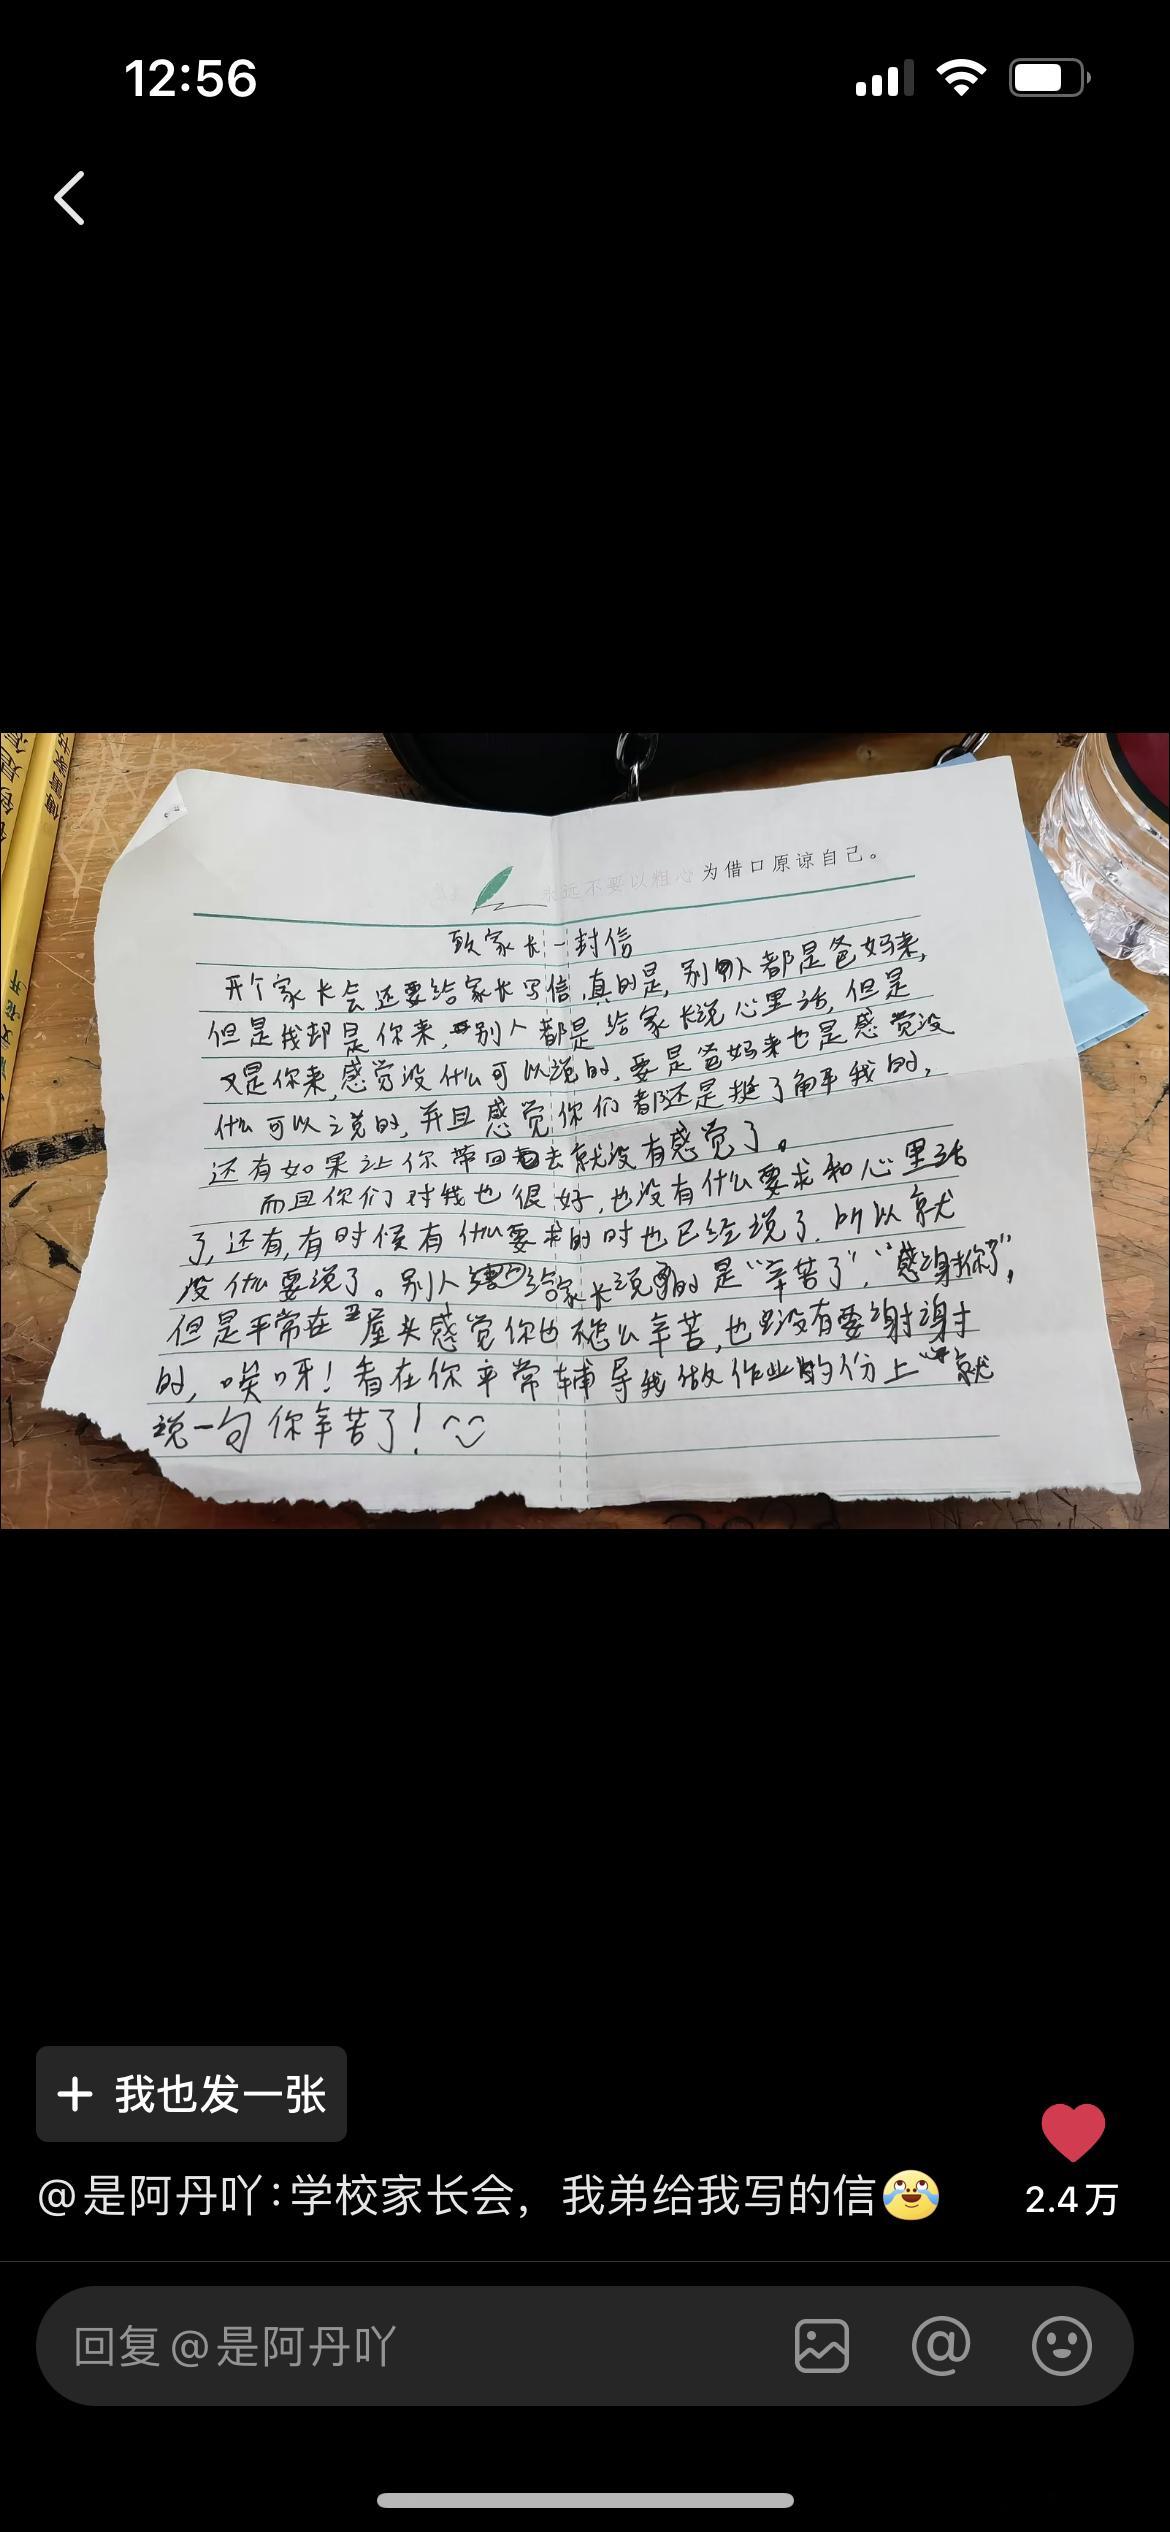 12:56
永远不要以粗心为借口原谅自己。
致家长一封信
开个家长会还要给家长写信,真的是,别人都是爸妈来,
但是我却是你来,别人都是给家长说心里话,但是
又是你来,感觉没什么可以说的,要是爸妈来也是感觉没
什么可以说的,并且感觉你们都还是挺了解我的,
还有如果让你带回去就没有感觉了。
而且你们对我也很好,也没有什么要求和心里话
了,还有,有时候有什么要求的时也已经说了,所以就
没什么要说了。别人给家长说的是“辛苦了”,“感谢你”,
但是平常在屋头感觉你也不怎么辛苦,也没有要谢谢
的,唉呀!看在你平常辅导我做作业的份上就
说一句你辛苦了!
+ 我也发一张
@是阿丹吖:学校家长会,我弟给我写的信
2.4万
回复 @是阿丹吖